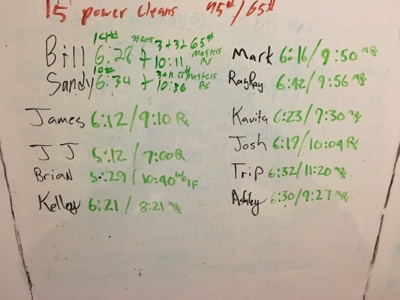 15 power cleans 95#/65#
14#
Bill 6:28 + 3+3+ 65#
10:11 masters Rx
10#
Sandy 6:34 + masters
10:36 Rx
James 6:12/9:10 Rx
JJ 5:12/7:00 R
Brian 5:29/10:40
Kelley 6:21/8:21 Rx
Mark 6:16/9:50 Rx
Ragley 6:42/9:56 Rx
Kavita 6:23/9:30 Rx
Josh 6:19/10:04 Rx
Trip 6:32/11:20 Rx
Ashley 6:30/9:27 Rx